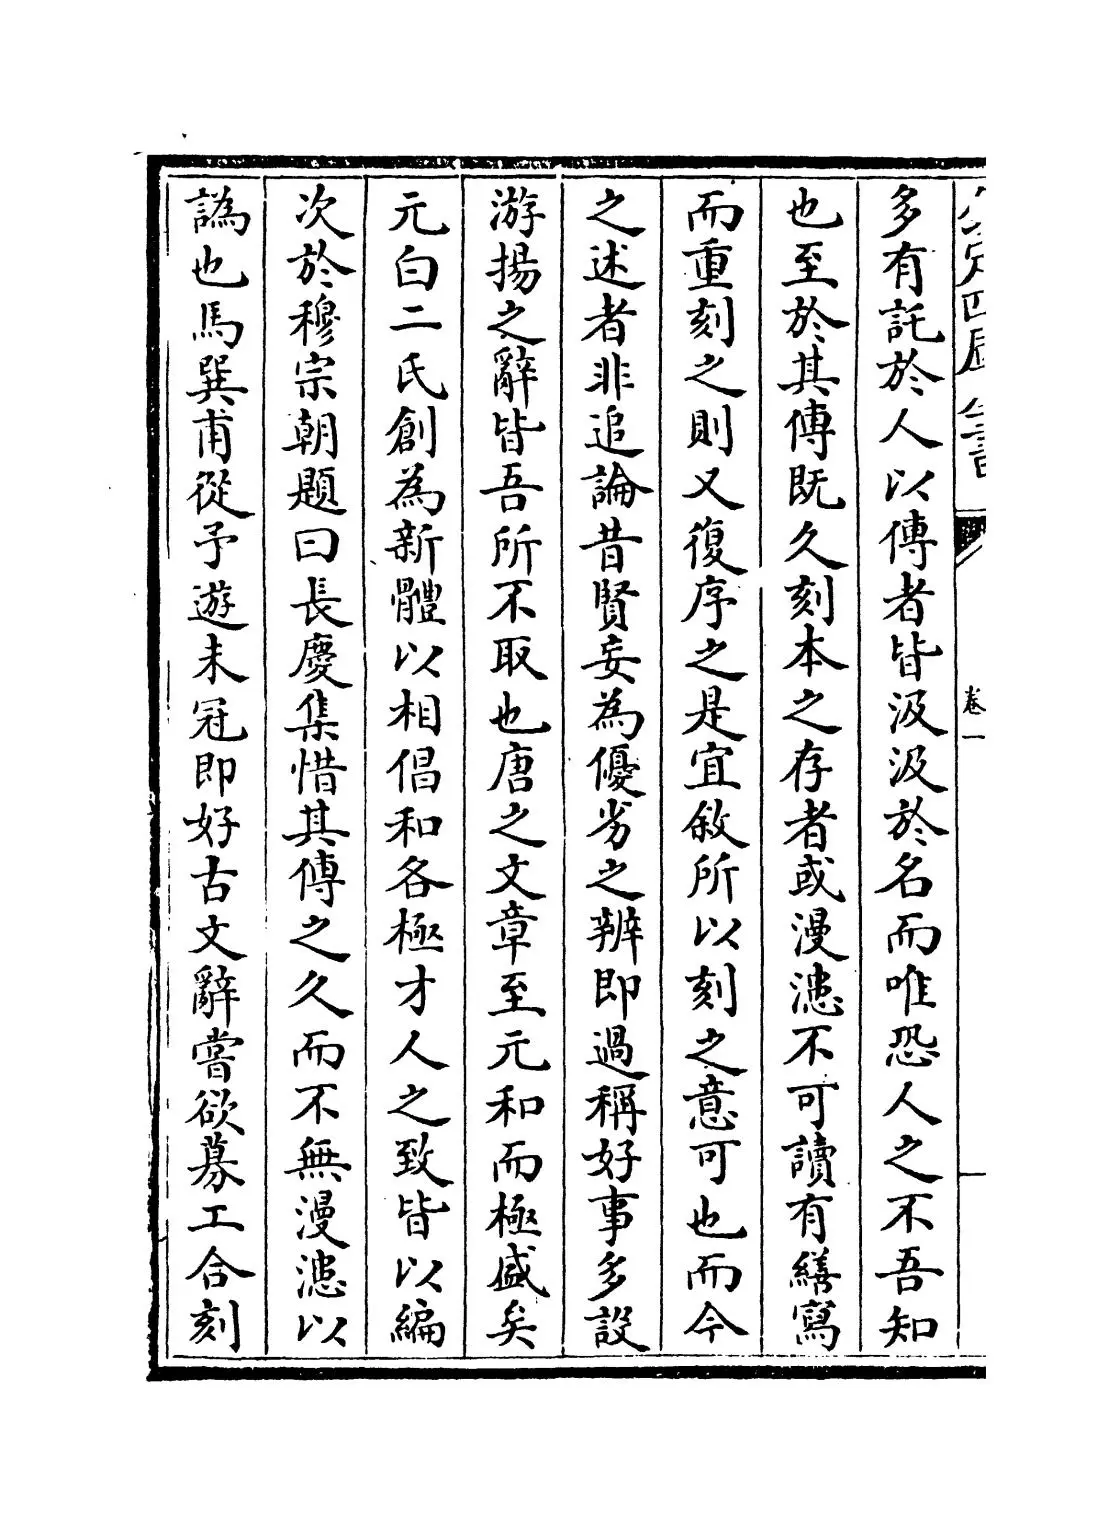 多有託於人以傳者皆汲汲於名而唯恐人之不吾知
也至於其傳既久刻本之存者或漫漶不可讀有繕寫
而重刻之則又復序之是宜敘所以刻之意可也而今
之述者非追論昔賢妄為優劣之辨即過稱好事多設
游揚之辭皆吾所不取也唐之文章至元和而極盛矣
元白二氏創為新體以相倡和各極才人之致皆以編
次於穆宗朝題曰長慶集惜其傳之久而不無漫漶以
譌也馬巽甫從予遊未冠即好古文辭嘗欲募工合刻
卷一